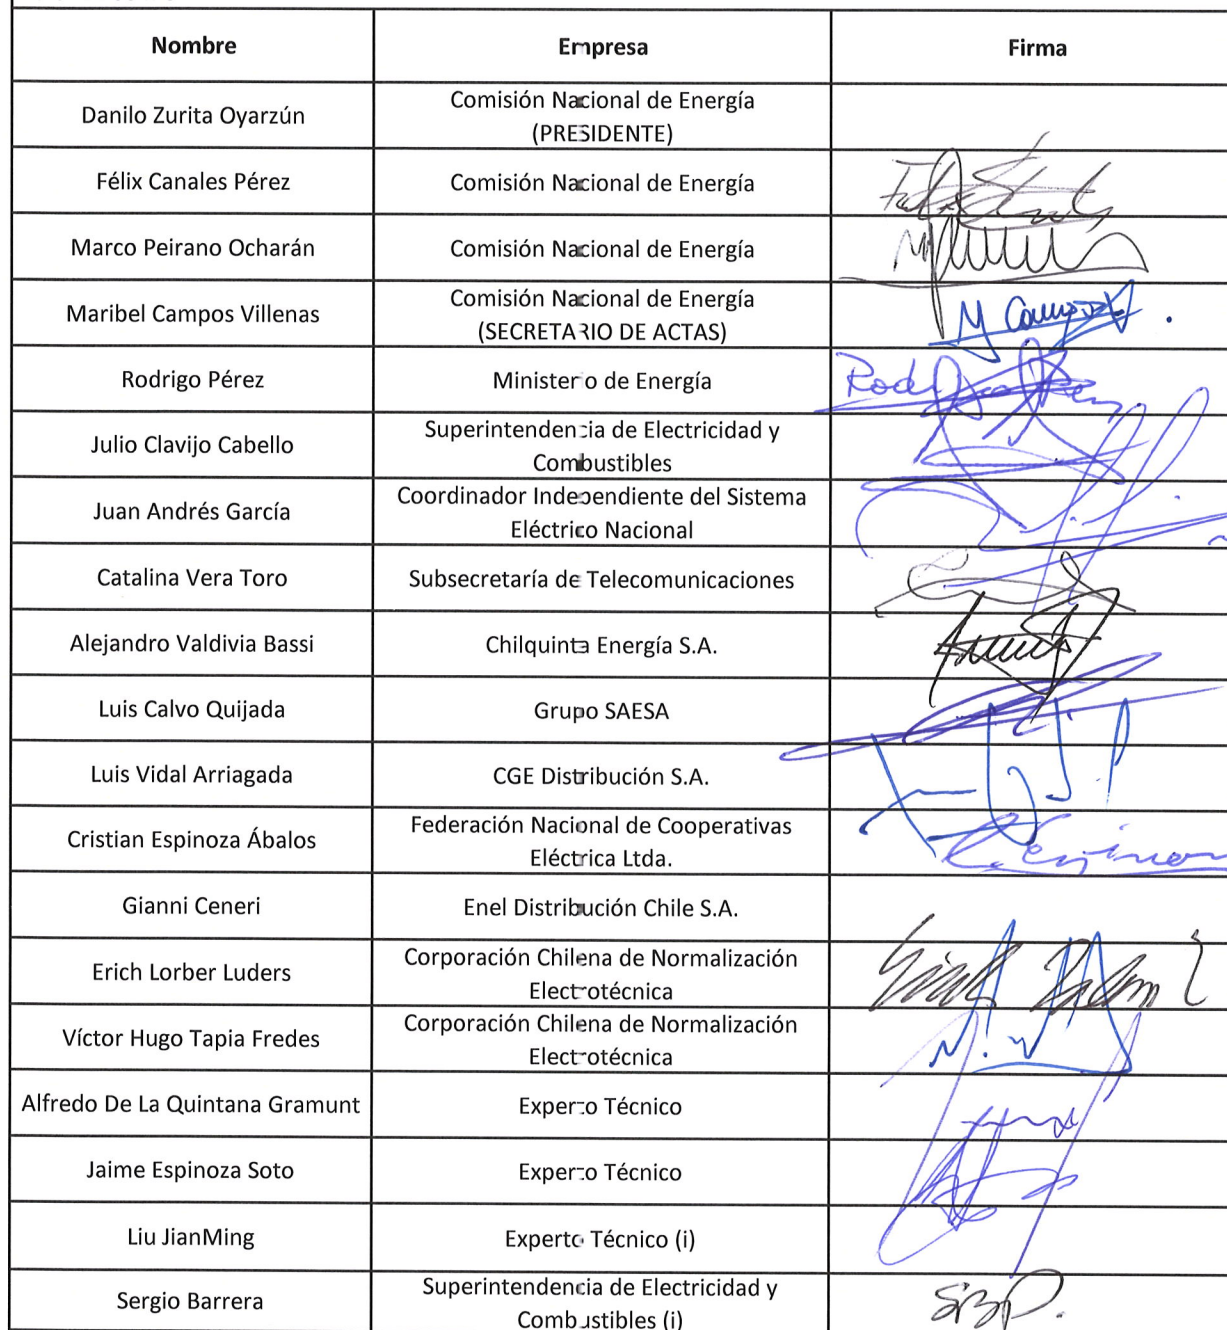 Nombre Empresa Firma
Danilo Zurita Oyarzún Comisión Nacional de Energía
(PRESIDENTE)
Félix Canales Pérez Comisión Nacional de Energía
Marco Peirano Ocharán Comisión Nacional de Energía
Maribel Campos Villenas Comisión Nacional de Energía
(SECRETARIO DE ACTAS)
M Campos
Rodrigo Pérez Ministerio de Energía
Rodrigo Perez
Julio Clavijo Cabello Superintendencia de Electricidad y
Combustibles
Juan Andrés García Coordinador Independiente del Sistema
Eléctrico Nacional
Catalina Vera Toro Subsecretaría de Telecomunicaciones
Alejandro Valdivia Bassi Chilquinta Energía S.A.
Luis Calvo Quijada Grupo SAESA
Luis Vidal Arriagada CGE Distribución S.A.
Cristian Espinoza Ábalos Federación Nacional de Cooperativas
Eléctrica Ltda.
Gianni Ceneri Enel Distribución Chile S.A.
Erich Lorber Luders Corporación Chilena de Normalización
Electrotécnica
Víctor Hugo Tapia Fredes Corporación Chilena de Normalización
Electrotécnica
Alfredo De La Quintana Gramunt Experto Técnico
Jaime Espinoza Soto Experto Técnico
Liu JianMing Experto Técnico (i)
Sergio Barrera Superintendencia de Electricidad y
Combustibles (i)